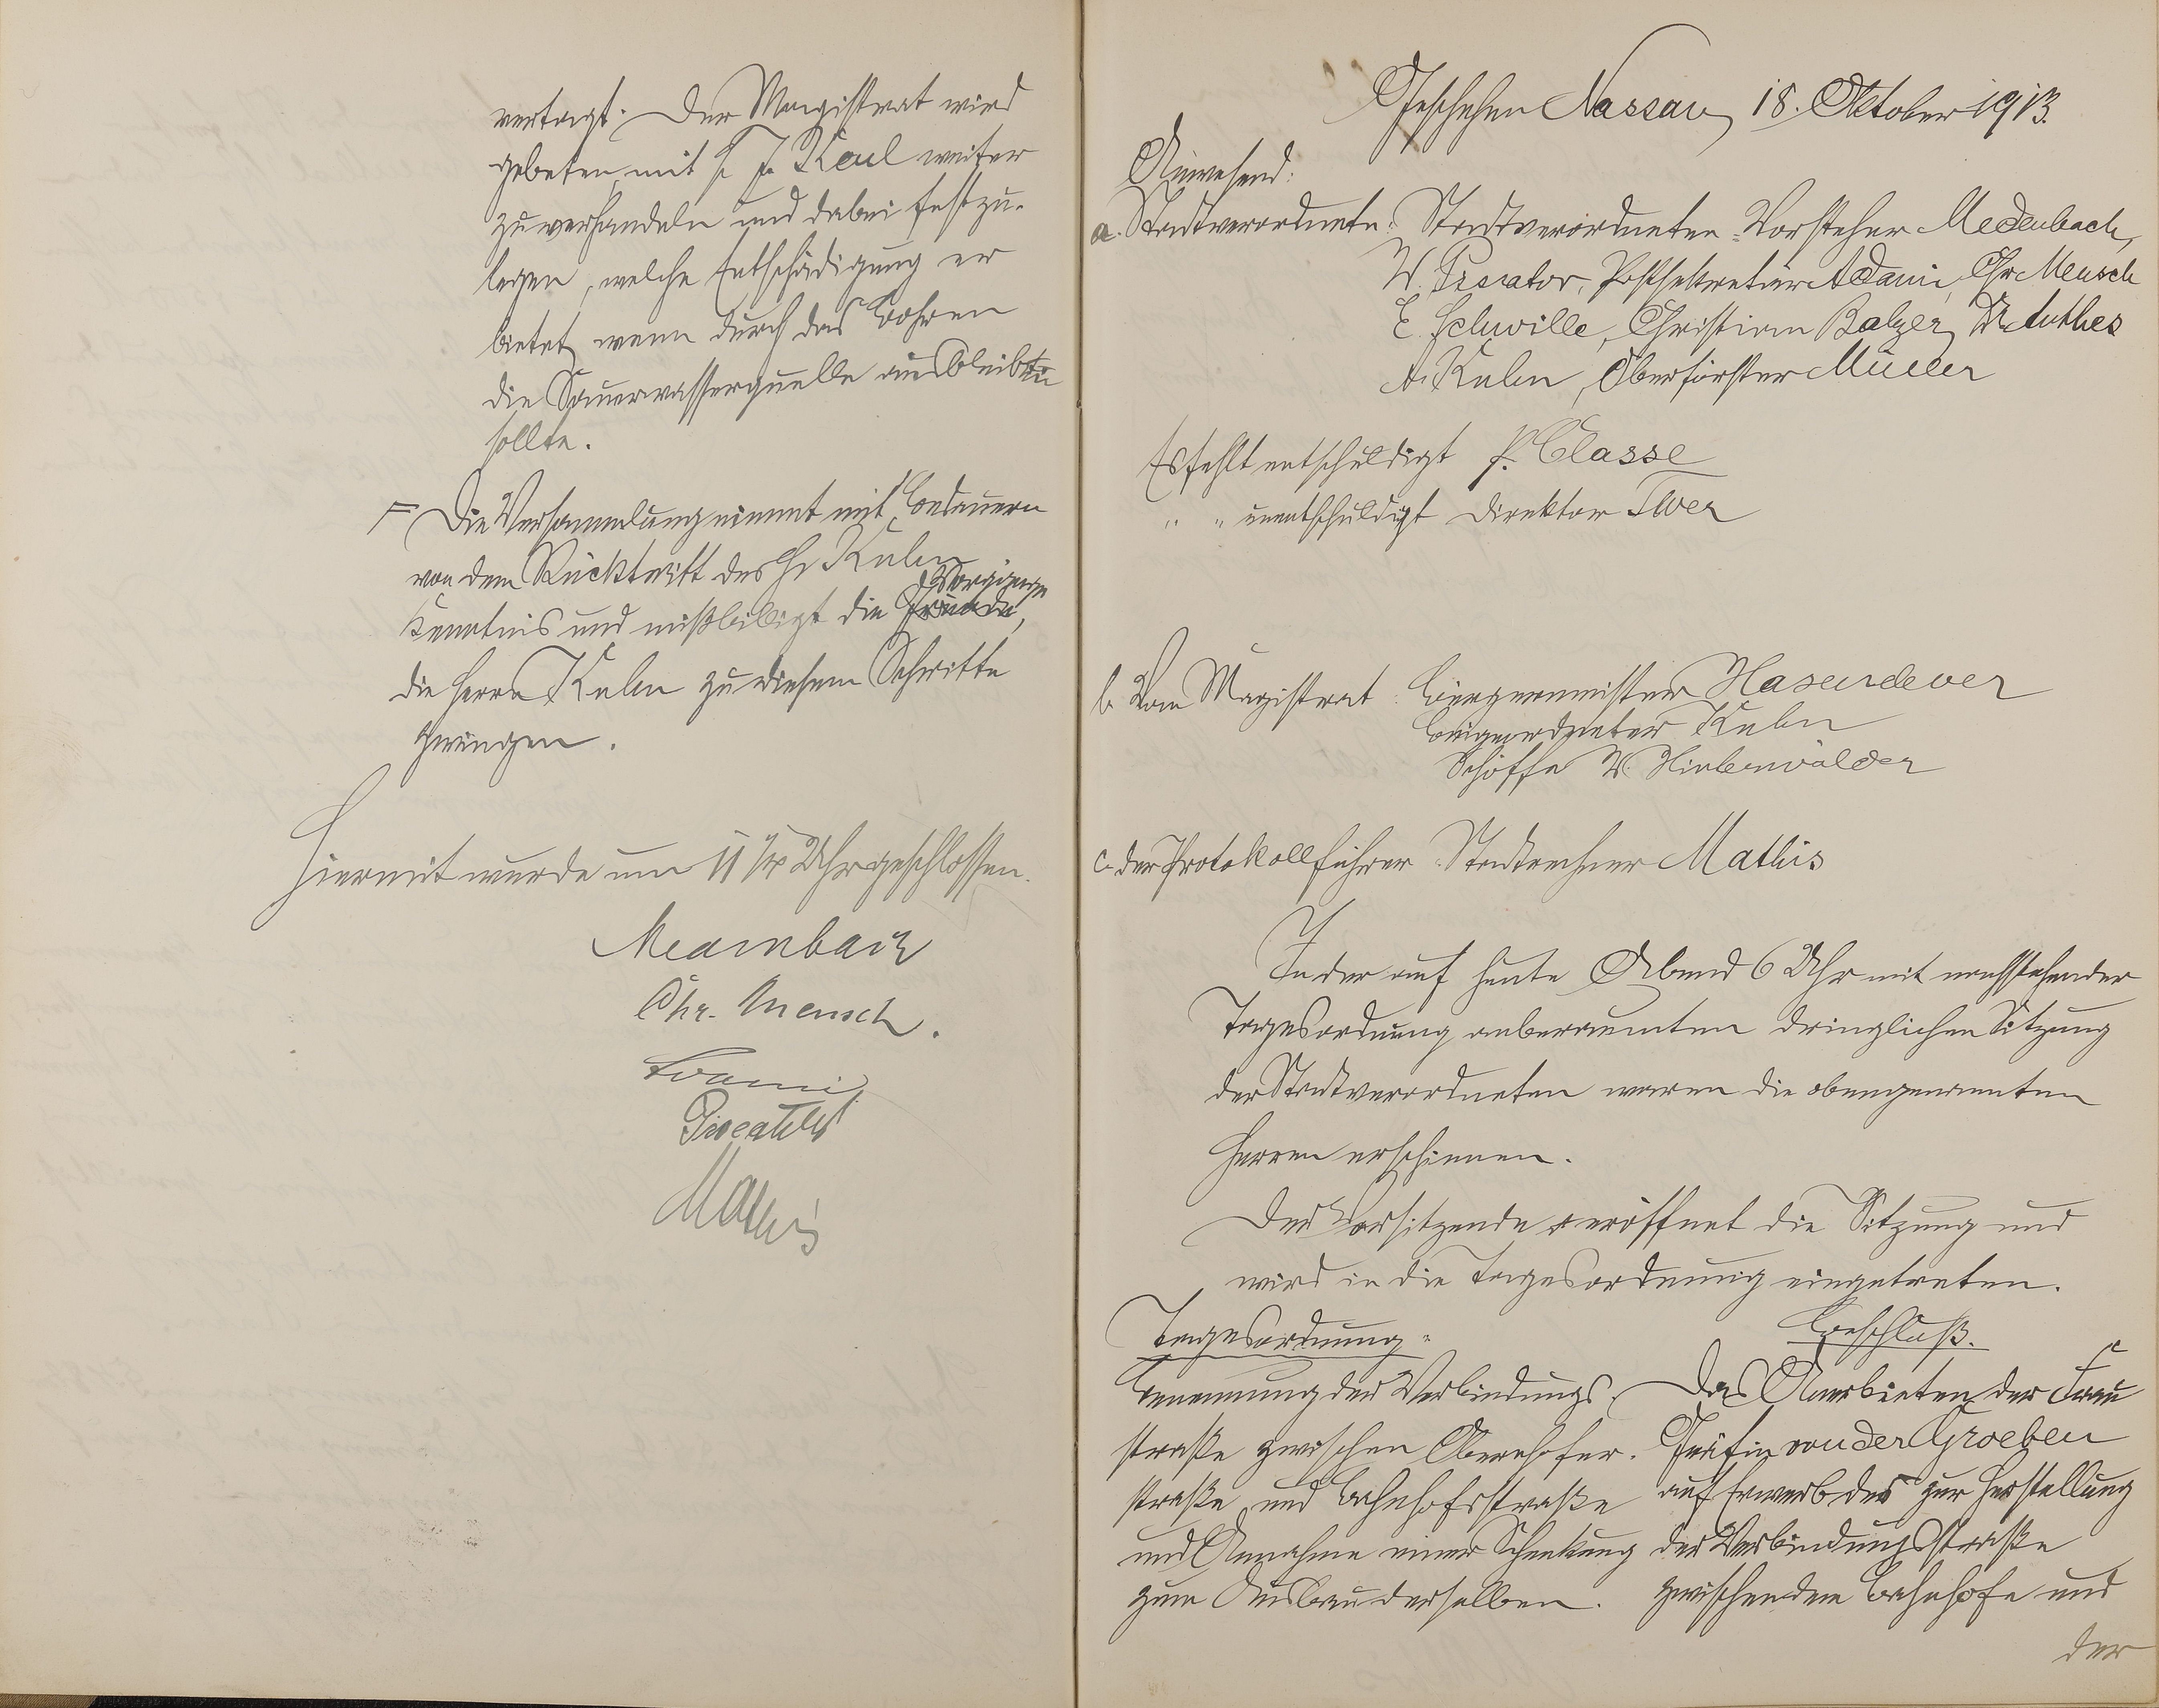 vertagt. Der Magistrat wird
gebeten, mit H. J. Kaul weiter
zu verhandeln und dabei festzu-
legen, welche Entschädigung er
bietet, wenn durch das Bohren
die Sauerwasserquelle ausbleiben
sollte.
F Die Versammlung nimmt mit Bedauern
von dem Rücktritt des Hr Kuhn
Kenntnis und mißbilligt die Vorgänge,
die Herrn Kuhn zu diesem Schritte
zwingen.
Hiermit wurde um 11 Uhr geschlossen.
Medenbach
Chr. Mensch.
Adami
Piscator
Mathis
Geschehen Nassau, 18. Oktober 1913.
Anwesend:
a. Stadtverordnete: Stadtverordneten-Vorsteher Medenbach,
W. Piscator, Postsekretär Adami, Chr Mensch
E Schwille, Christian Balzer, Dr Anthes
A. Kuhn, Oberförster Müller
Es fehlt entschuldigt P. Classe
" " unentschuldigt Direktor
b. Vom Magistrat: Bürgermeister Hasenclever
Beigeordneter Kuhn
Schöffe W.
c. der Protokollführer Stadtrechner Mathis
In der auf heute Abend 6 Uhr mit nachstehender
Tagesordnung anberaumten dringlichen Sitzung
der Stadtverordneten waren die obengenannten
Herren erschienen.
Der Vorsitzende eröffnet die Sitzung und
wird in die Tagesordnung eingetreten.
Tagesordnung:
Benennung der Verbindungs-
straße zwischen Obernhofer-
straße und Bahnhofsstraße
und Annahme einer Schenkung
zum Ausbau derselben.
Beschluß.
Das Anerbieten der Frau
Gräfin von der Groeben
auf Erwerb des zur Herstellung
der Verbindungsstraße
zwischen dem Bahnhofe und
der